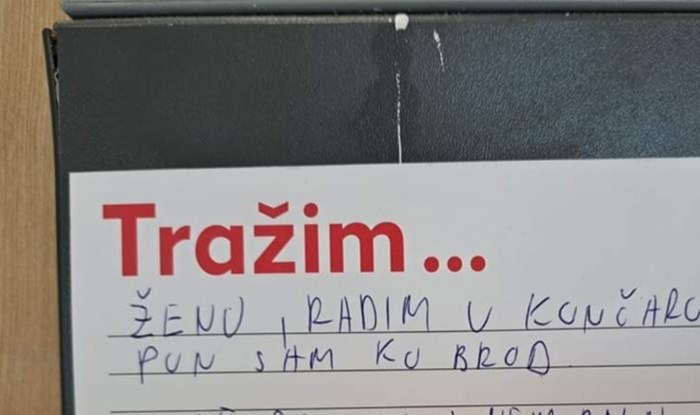 Tražim...
ŽENU, RADIM U KONČARU
PUN SAM KO BROD